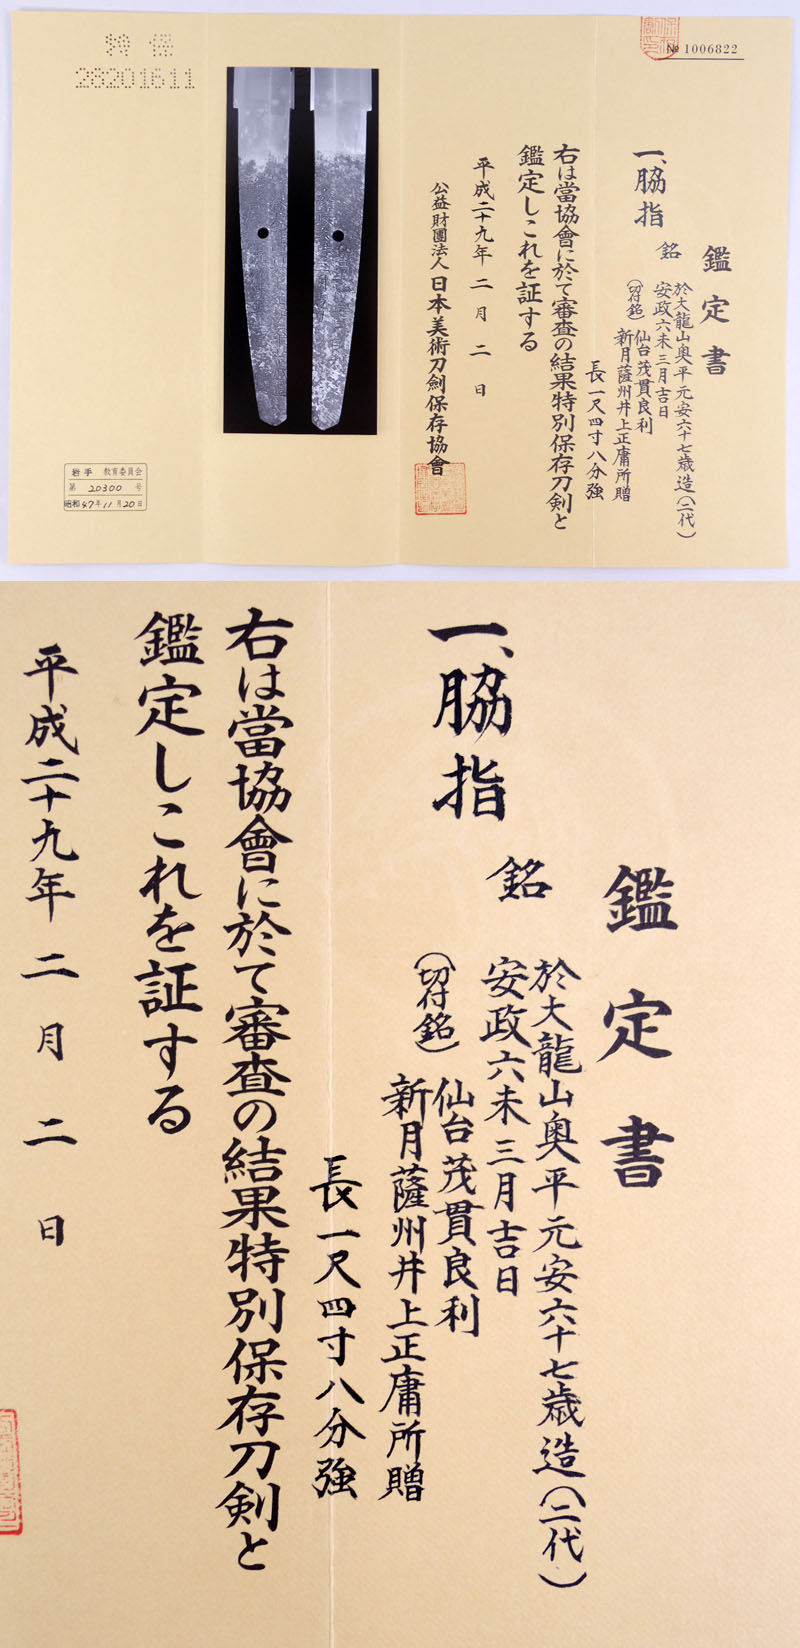 № 1006822
鑑定書
一、脇指
銘
於大龍山奥平元安六十七歳造(二代)
安政六未三月吉日
(切付銘)
仙台茂貫良利
新月薩州井上正庸所贈
長一尺四寸八分強
右は當協會に於て審査の結果特別保存刀剣と
鑑定しこれを証する
平成二十九年二月二日
公益財團法人日本美術刀劍保存協會
特保
28201611
岩手 教育委員会
第 20300 号
昭和47年11月20日
鑑定書
一、脇指
銘
於大龍山奥平元安六十七歳造(二代)
安政六未三月吉日
(切付銘)
仙台茂貫良利
新月薩州井上正庸所贈
長一尺四寸八分強
右は當協會に於て審査の結果特別保存刀剣と
鑑定しこれを証する
平成二十九年二月二日